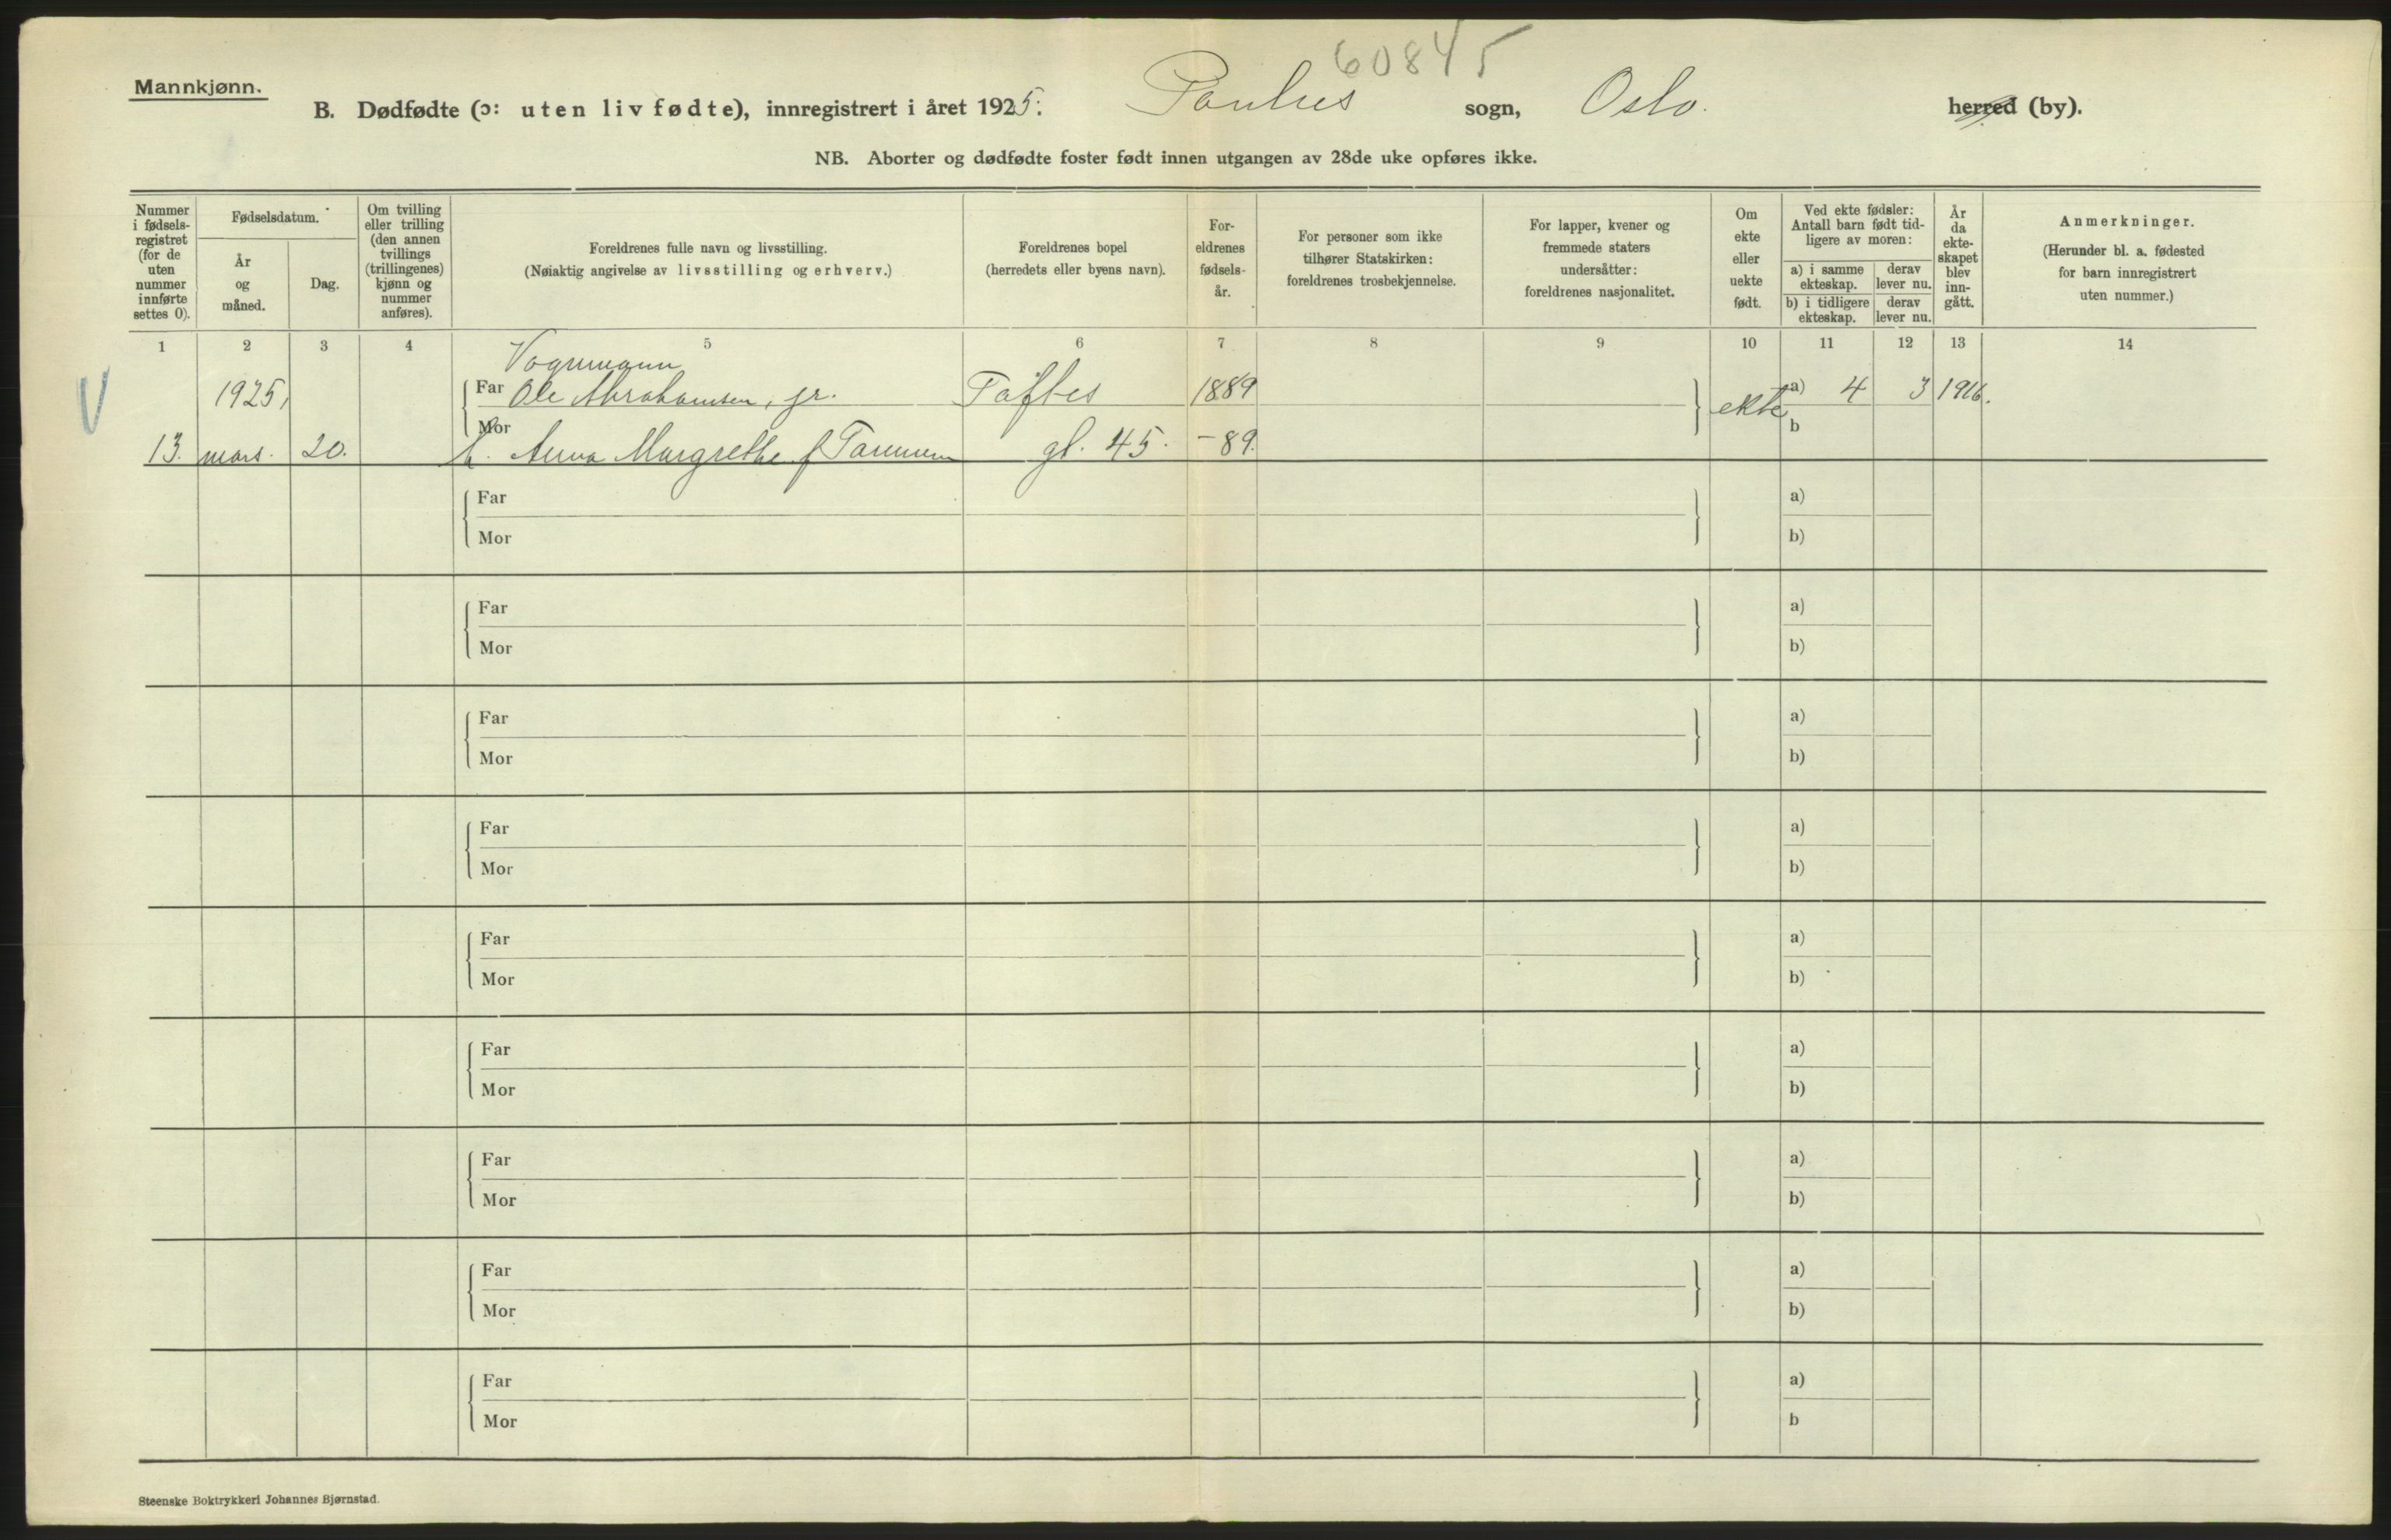 60845
Mannkjønn.
B. Dødfødte (ɔ: uten liv fødte), innregistrert i året 1925. Paulus sogn, Oslo. herred (by).
NB. Aborter og dødfødte foster født innen utgangen av 28de uke opføres ikke.
Nummer i fødsels-registret (for de uten nummer innførte settes 0).
Fødselsdatum.
År og måned.
Dag.
Om tvilling eller trilling (den annen tvillings (trillingenes) kjønn og nummer anføres).
Foreldrenes fulle navn og livsstilling.
(Nøiaktig angivelse av livsstilling og erhverv.)
Foreldrenes bopel
(herredets eller byens navn).
For-eldrenes fødsels-år.
For personer som ikke tilhører Statskirken: foreldrenes trosbekjennelse.
For lapper, kvener og fremmede staters undersåtter: foreldrenes nasjonalitet.
Om ekte eller uekte født.
Ved ekte fødsler: Antall barn født tid-ligere av moren:
a) i samme ekteskap.
derav lever nu.
b) i tidligere ekteskap.
derav lever nu.
År da ekte-skapet blev inn-gått.
Anmerkninger.
(Herunder bl. a. fødested for barn innregistrert uten nummer.)
1 2 3 4 5 6 7 8 9 10 11 12 13 14
Vognmann
1925, Far Ole Abrahamsen, jr. Toftes 1889 ekte a) 4 3 1916.
Mor b
13. mars. 20. h. Anna Margrethe f. gt. 45. -89.
Far a)
Mor b)
Far a)
Mor b)
Far a)
Mor b)
Far a)
Mor b)
Far a)
Mor b)
Far a)
Mor b)
Far a)
Mor b)
Far a)
Mor b)
Far a)
Mor b
Steenske Boktrykkeri Johannes Bjørnstad.